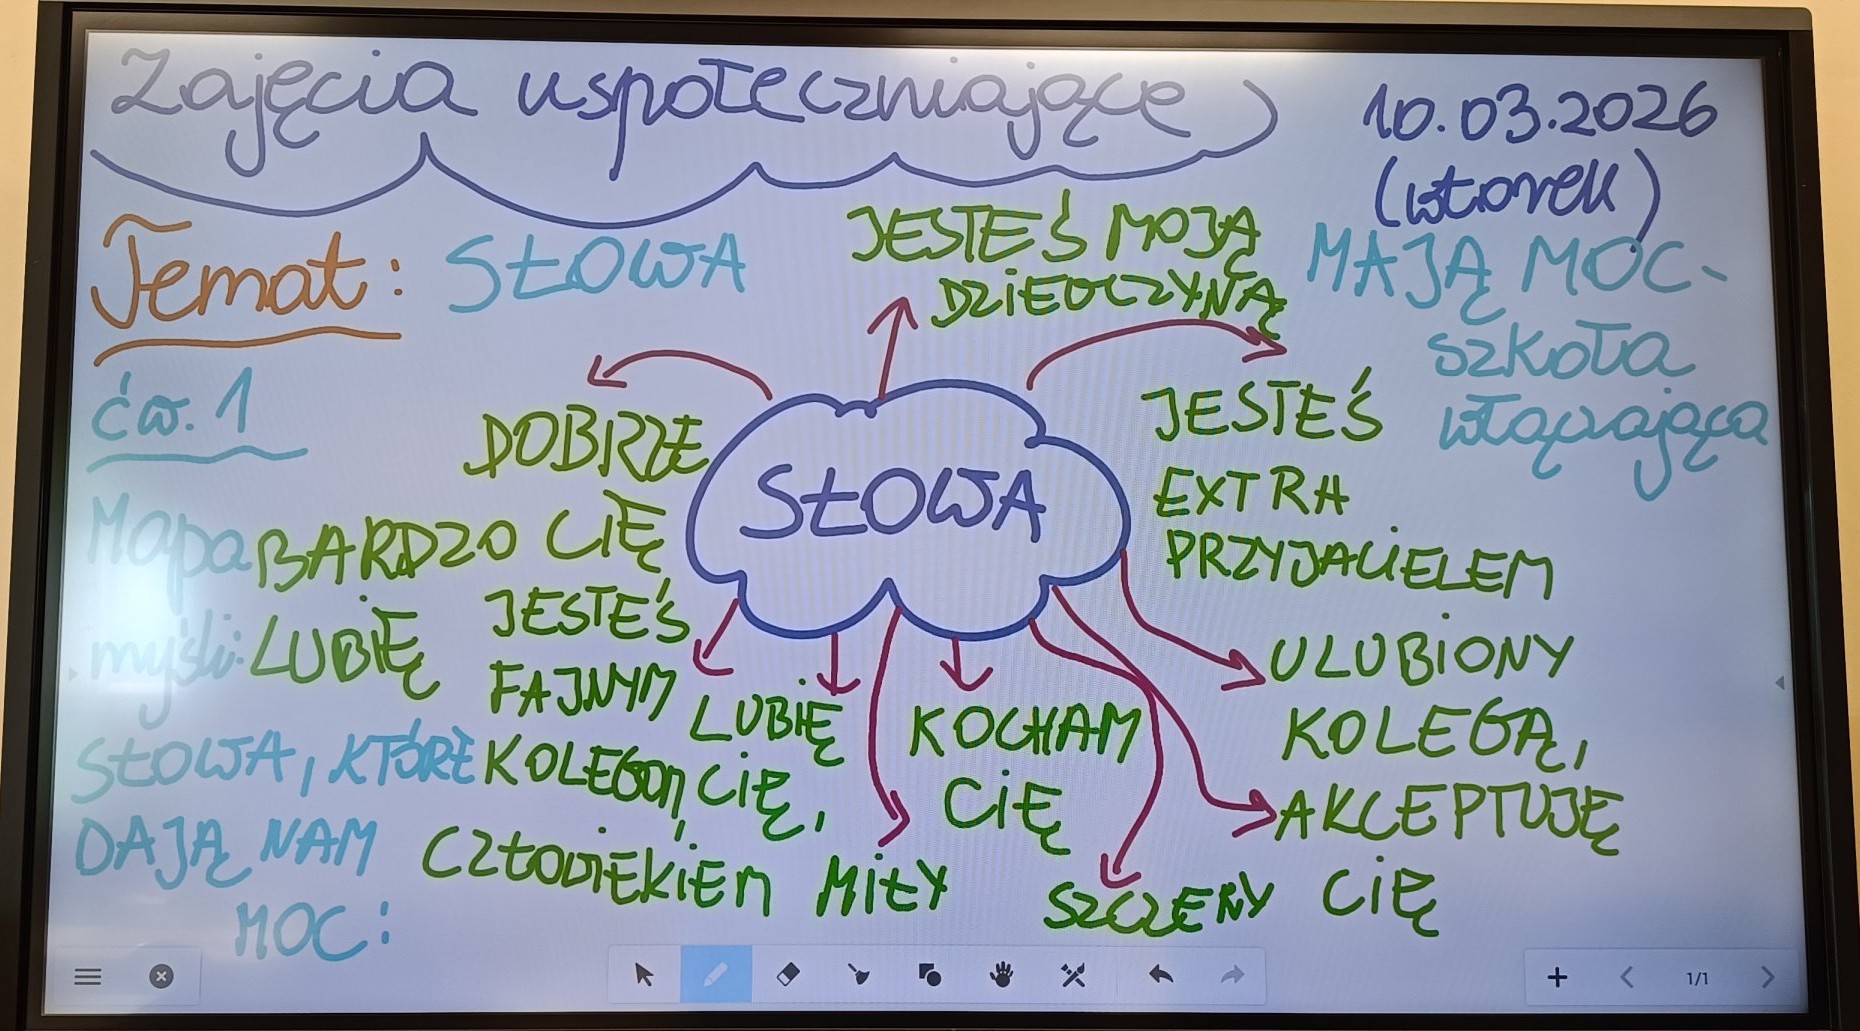 Zajęcia uspołeczniające
10.03.2026
(wtorek)
Temat: SŁOWA MAJĄ MOC-
szkoła
włączająca
ćw. 1
Mapa
myśli:
SŁOWA, KTÓRE
DAJĄ NAM
MOC:
SŁOWA
JESTEŚ MOJĄ
DZIEWCZYNĄ
DOBRZE
BARDZO CIĘ
LUBIĘ
JESTEŚ
FAJNYM
KOLEGOM,
CZŁOWIEKIEM
LUBIĘ
CIĘ,
MIŁY
KOCHAM
CIĘ
SZCZERY
JESTEŚ
EXTRA
PRZYJACIELEM
ULUBIONY
KOLEGA,
AKCEPTUJĘ
CIĘ
1/1